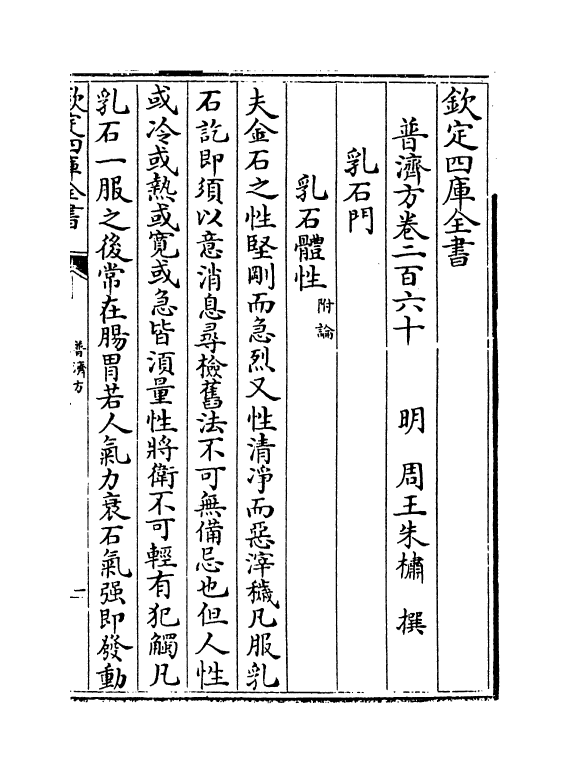 欽定四庫全書
普濟方卷二百六十 明 周王朱橚 撰
乳石門
乳石體性附論
夫金石之性堅剛而急烈又性清凈而惡滓穢凡服乳
石訖即須以意消息尋檢舊法不可無備忌也但人性
或冷或熱或寛或急皆湏量性將衛不可輕有犯觸凡
乳石一服之後常在腸胃若人氣力衰石氣强即發動
欽定四庫全書
普濟方
一